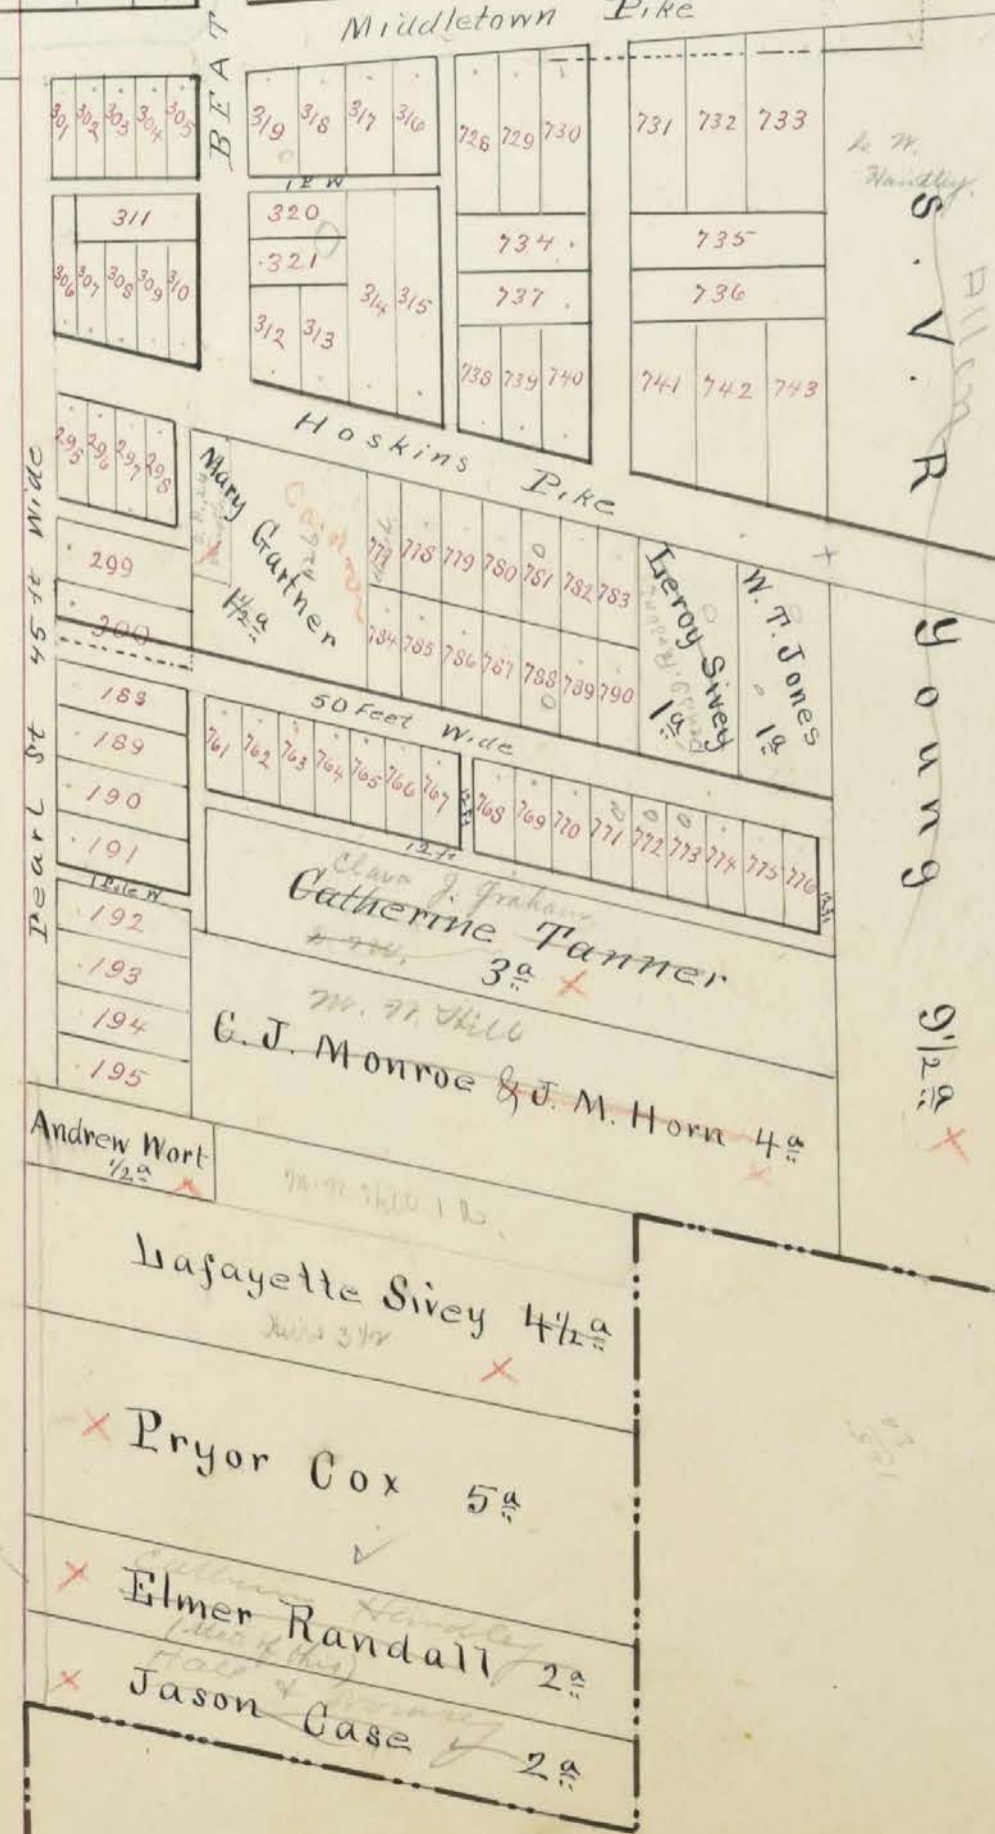 Middletown Pike
BEAT
301 302 303 304 305
319 318 317 316
728 729 730
731 732 733
Handley
311
306 307 308 309 310
320
321
312 313
314 315
734
737
738 739 740
735
736
741 742 743
S. V. R Young 9 1/2 a
Allen
Hoskins Pike
295 296 297 298
299
300
Pearl St 45 ft Wide
Mary Gartner
1 1/2 a
777 778 779 780 781 782 783
784 785 786 787 788 789 790
Leroy Sivey
1 a
W. T. Jones
1 a
50 Feet Wide
188
189
190
191
1 Pole W
192
193
194
195
761 762 763 764 765 766 767
12 ft
768 769 770 771 772 773 774 775 776
12 ft
12 ft
Clara J. Graham
Catherine Tanner
3 a
M. N. Hill
C. J. Monroe & J. M. Horn 4 a
Andrew Wort
1/2 a
Lafayette Sivey 4 1/2 a
Heirs 3 1/2
Pryor Cox 5 a
Handley
Elmer Randall 2 a
Jason Case 2 a